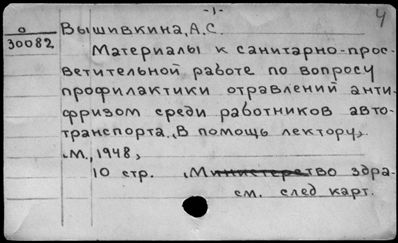 -1-
4
О
30082
Вышивкина, А.С.
Материалы к санитарно-прос-
ветительной работе по вопросу
профилактики отравлений анти-
фризом среди работников авто-
транспорта. "В помощь лектору".
М., 1948,
10 стр. (Министерство здра-
см. след карт.